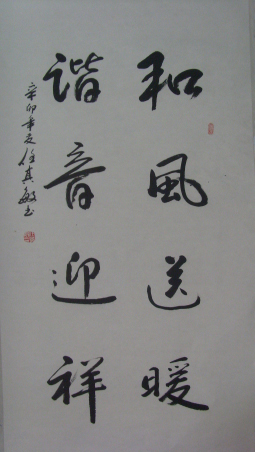 和風送暖
諧音迎祥
辛卯年夏任真敏书